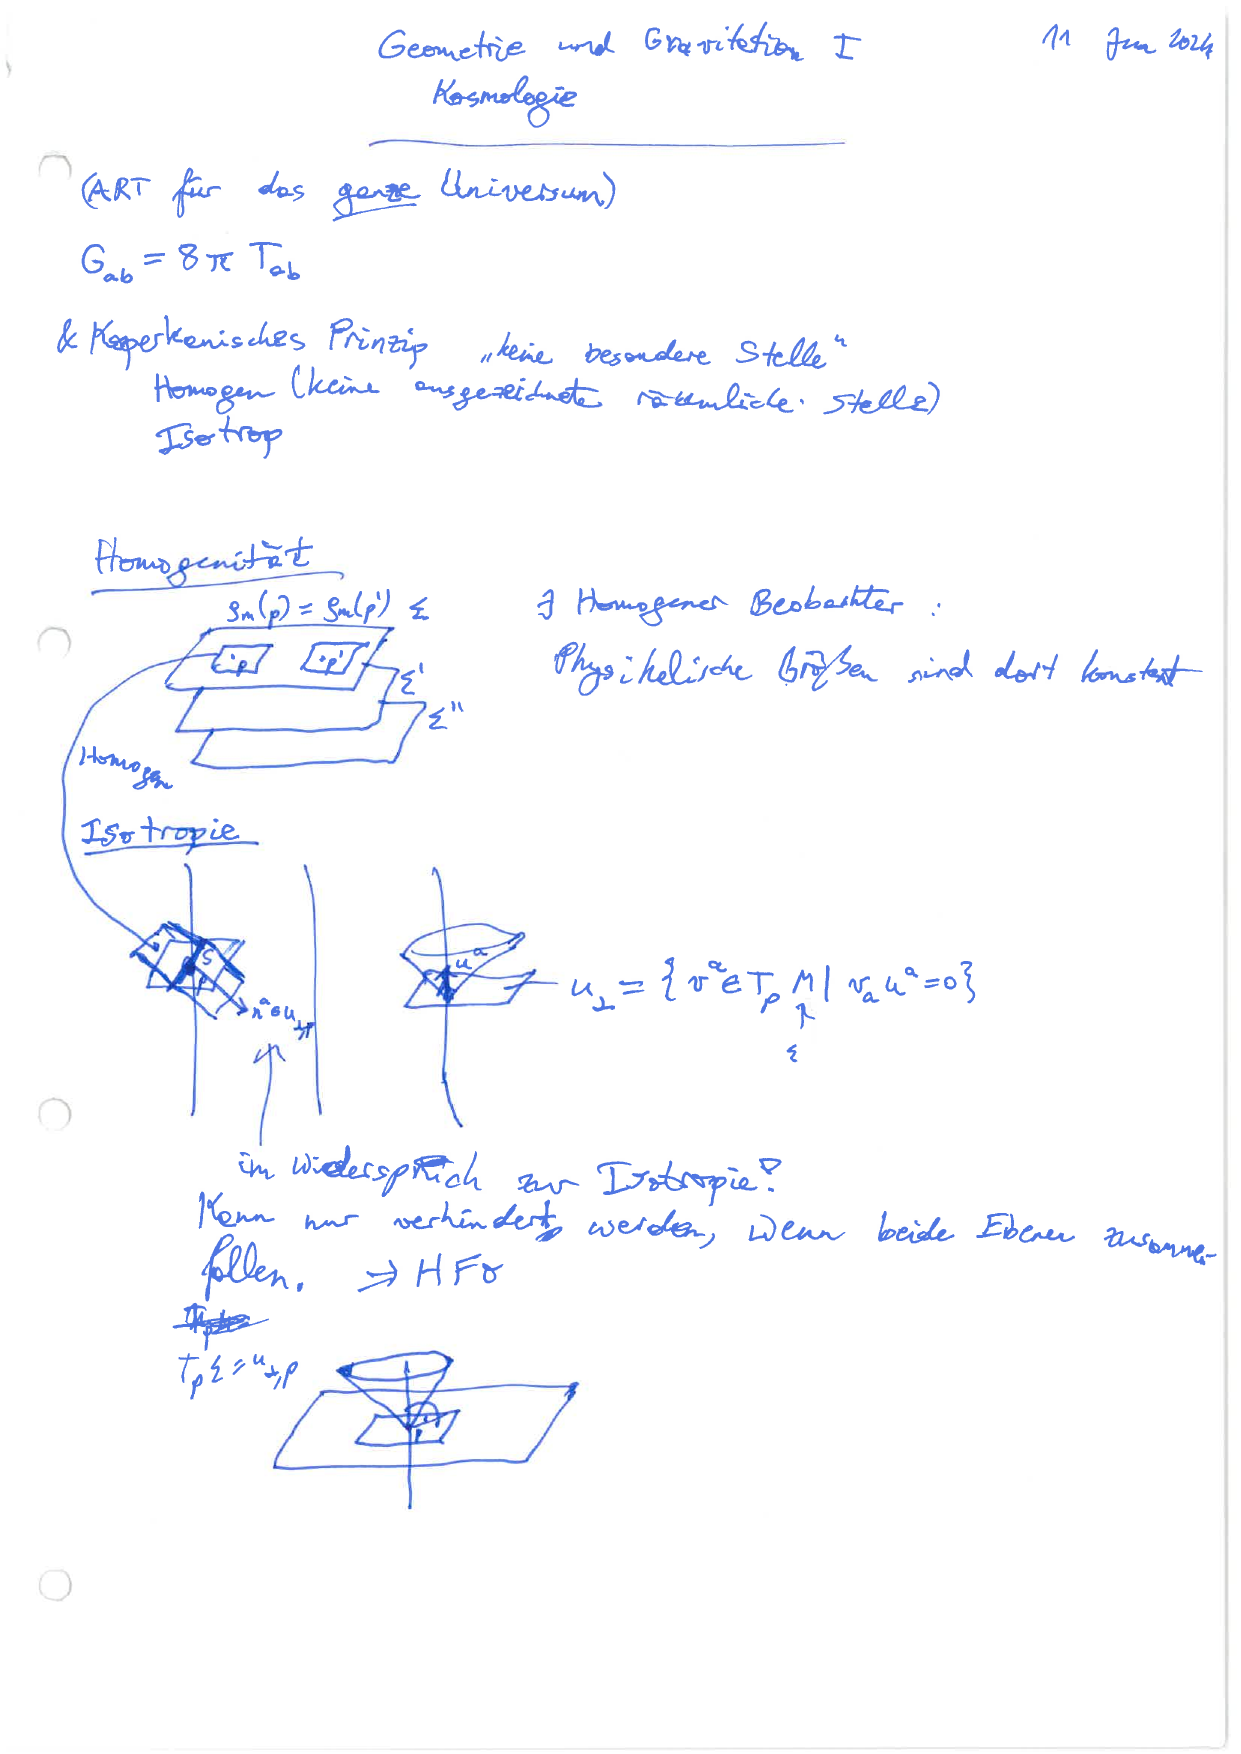 Geometrie und Gravitation I
11 Jun 2024
Kosmologie
(ART für das ganze Universum)
G_ab = 8 π T_ab
& Koperkenisches Prinzip „keine besondere Stelle"
Homogen (keine ausgezeichnete räumliche Stelle)
Isotrop
Homogenität
ρm(p) = ρm(p') Σ
∃ Homogener Beobachter :
p p'
Physikalische Größen sind dort konstant
Σ'
Σ''
Homogen
Isotropie
S
p
u^a
n^a ∈ u_⊥,p
u_⊥ = { v^a ∈ T_p M | v_a u^a = 0 }
↑
Σ
im Widerspruch zur Isotropie!
Kann nur verhindert werden, wenn beide Ebenen zusammen-
fallen. ⇒ HFO
T_p Σ = u_⊥,p
p